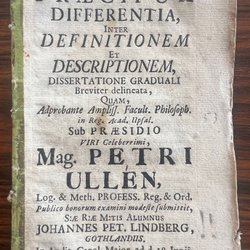 DIFFERENTIA,
INTER
DEFINITIONEM
ET
DESCRIPTIONEM,
DISSERTATIONE GRADUALI
Breviter delineata,
QUAM,
Adprobante Ampliss. Facult. Philosoph.
in Reg. Acad. Upsal.
SUB PRÆSIDIO
VIRI Celeberrimi,
MAG. PETRI
ULLEN,
Log. & Meth. PROFESS. Reg. & Ord.
Publico bonorum examini modeste submittit,
S:Æ R:Æ M:TIS ALUMNUS
JOHANNES PET. LINDBERG,
GOTHLANDUS,
Carol. Majori ad d. 18 Junii